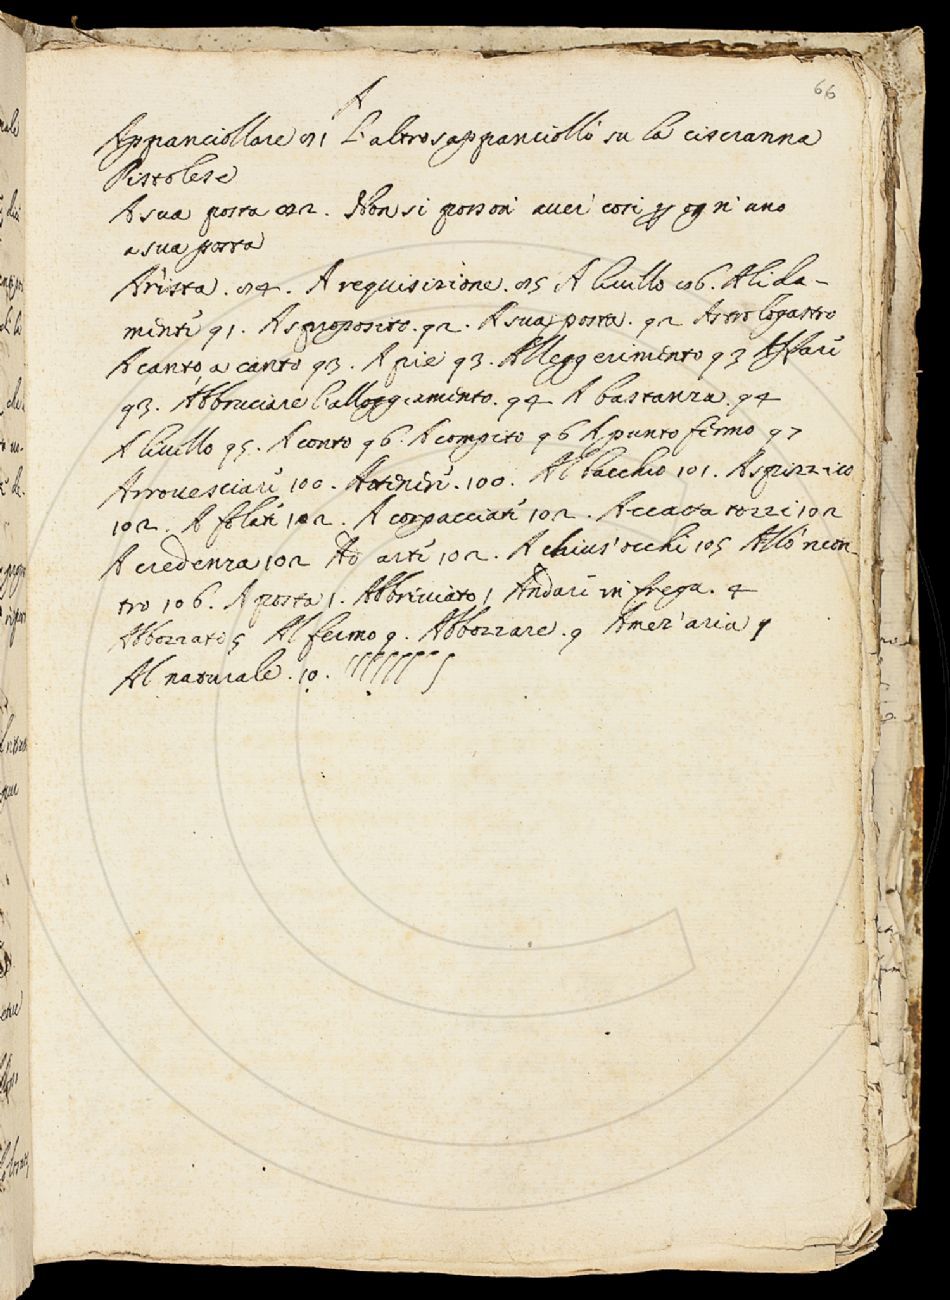 66
A
Appanciollare 81 L'altro s'appanciollò su la ciscranna
Pistolese
A sua posta 82. Non si possoni aver così ogn'uno
a sua posta
Arista. 84. A requisizione. 85 A livello 86. Alida-
menti 91. A sproposito. 92. A sua posta. 92 Astrologastro
A canto, a canto 93. A piè 93. Alleggerimento 93 Affari
93. Abbruciare l'alloggiamento. 94 A bastanza. 94
A livello 95. A conto 96. A compito 96 A punto fermo 97
Arrovesciari 100. 100. Al bacchio 101. A spizzico
102. A folati 102. A corpacciati 102. A ccava tozzi 102
A credenza 102 Ad arti 102. A chius'occhi 105 All'oncon-
tro 106. A posta 1. Abbriviato 1 Andari in frega. 4
Abbozzato 5 Al fermo 9. Abbozzare. 9 A mez'aria 9
Al naturale. 10.